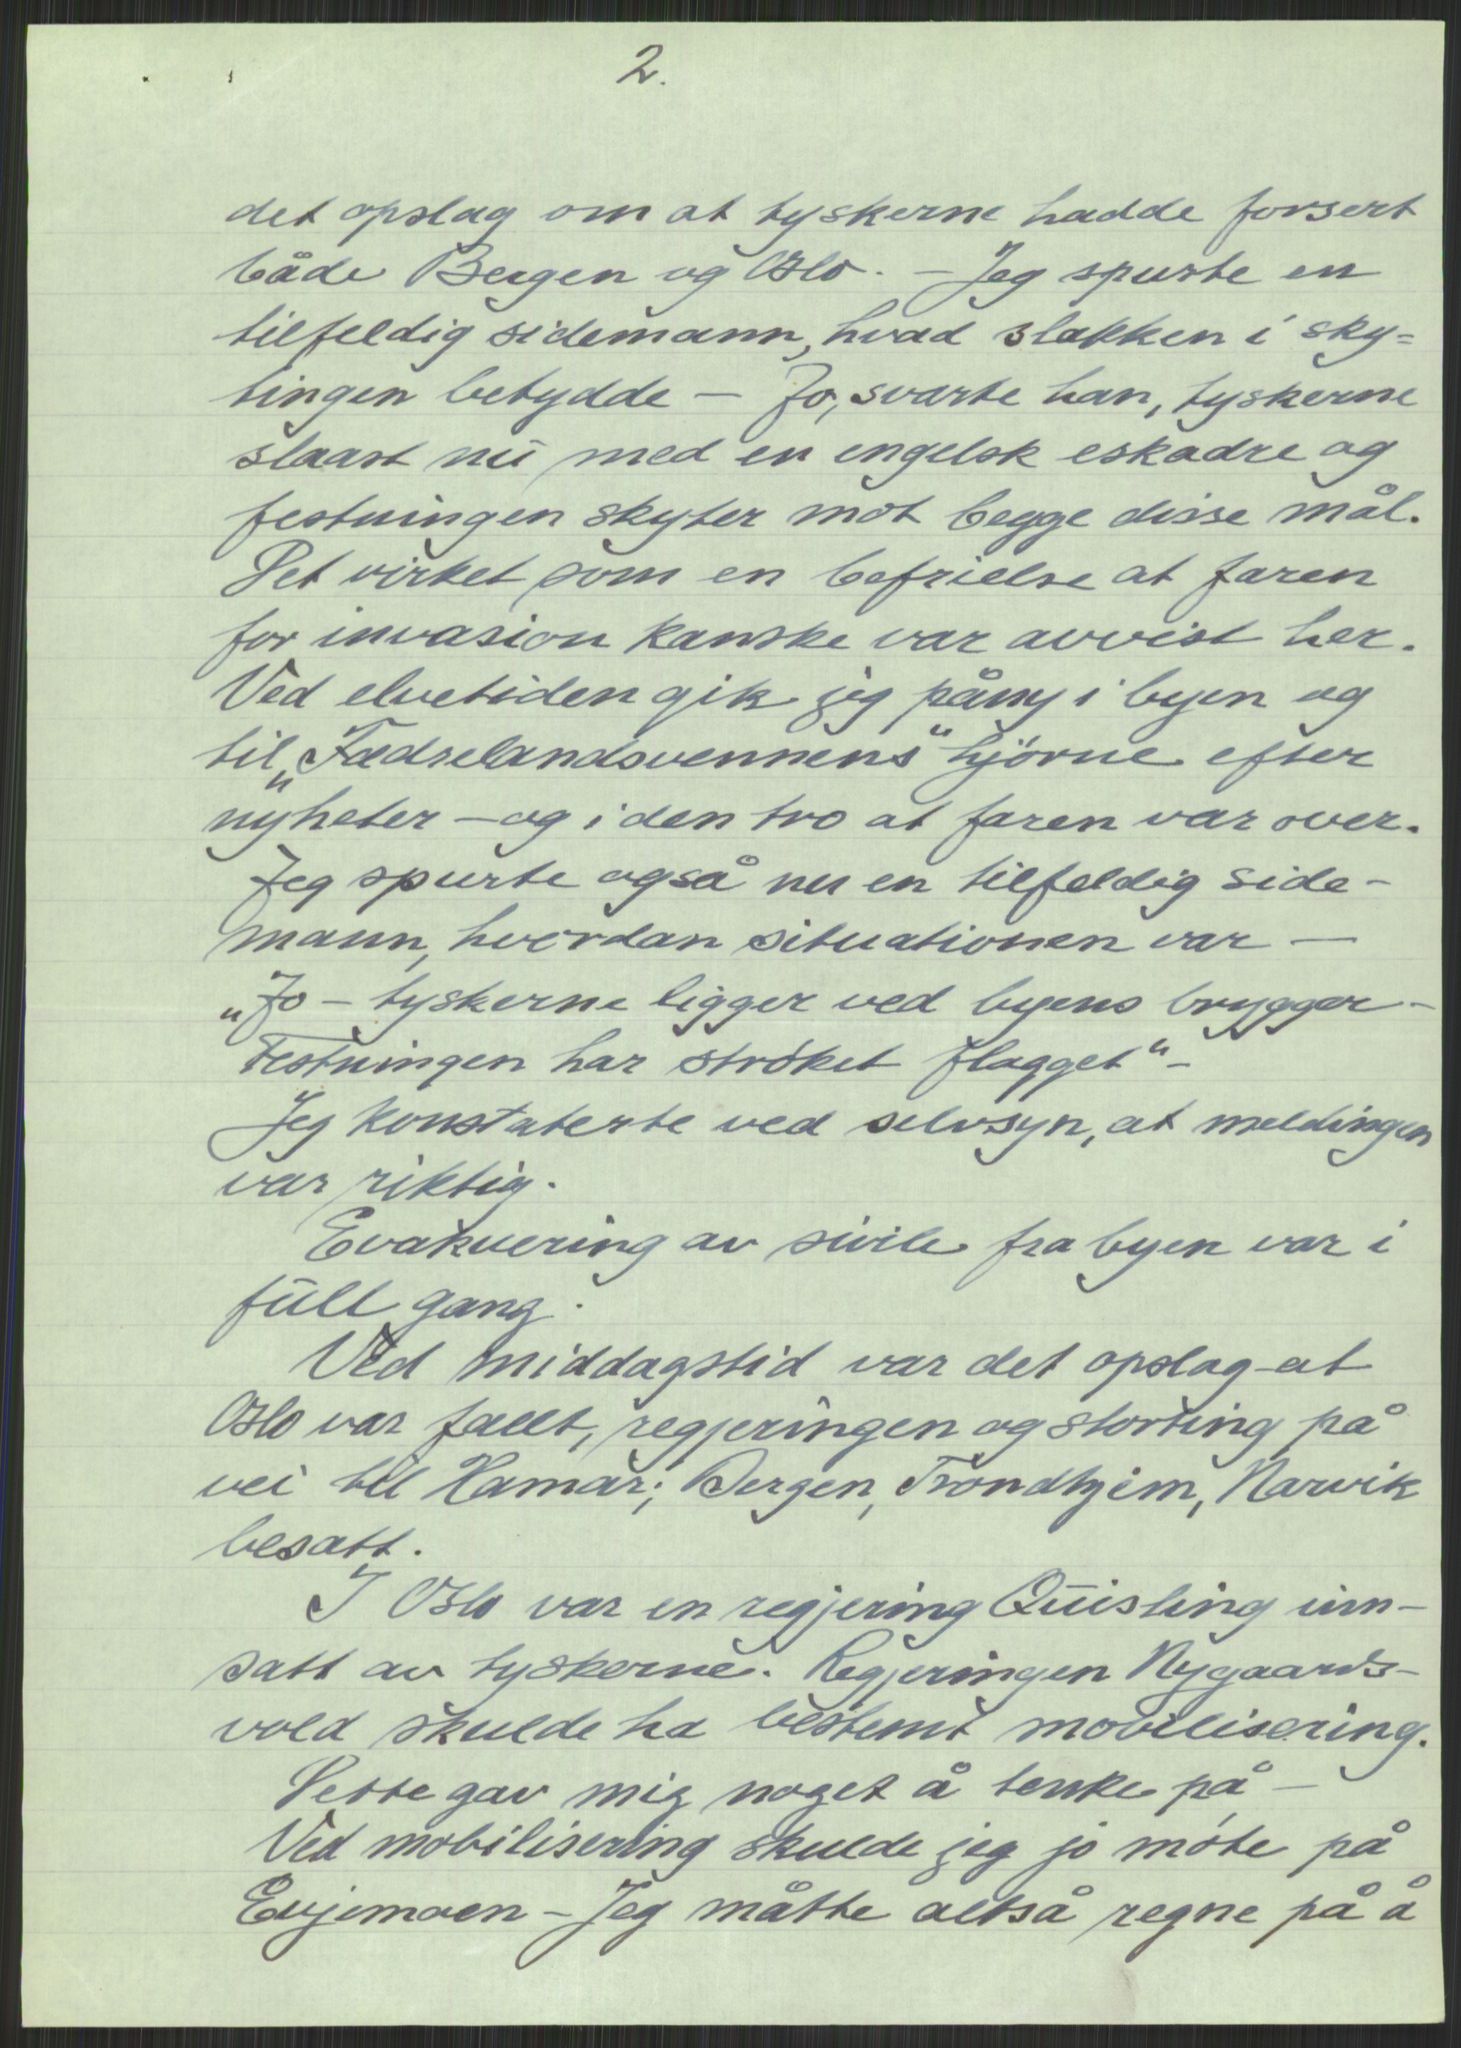 2.
det opslag om at tyskerne hadde forsert
både Bergen og Oslo. - Jeg spurte en
tilfeldig sidemann, hvad slakken i sky=
tingen betydde - Jo, svarte han, tyskerne
slaast nu med en engelsk eskadre og
festningen skyter mot begge disse mål.
Det virket som en befrielse at faren
for invasion kanske var avvist her.
Ved elvetiden gik jeg påny i byen og
til „Fædrelandsvennens“ hjörne efter
nyheter - og i den tro at faren var over.
Jeg spurte også nu en tilfeldig side-
mann, hvordan situationen var -
„Jo - tyskerne ligger ved byens brygger -
Festningen har ströket flagget“ -
Jeg konstaterte ved selvsyn, at meldingen
var riktig.
Evakuering av sivile fra byen var i
full gang.
Ved middagstid var det opslag at
Oslo var fallt, regjeringen og storting på
vei til Hamar; Bergen, Trondhjem, Narvik
besatt.
I Oslo var en regjering Quisling inn-
satt av tyskerne. Regjeringen Nygaards-
vold skulde ha bestemt mobilisering.
Dette gav mig noget å tenke på -
Ved mobilisering skulde jeg jo möte på
Evjemoen - Jeg måtte altså regne på å